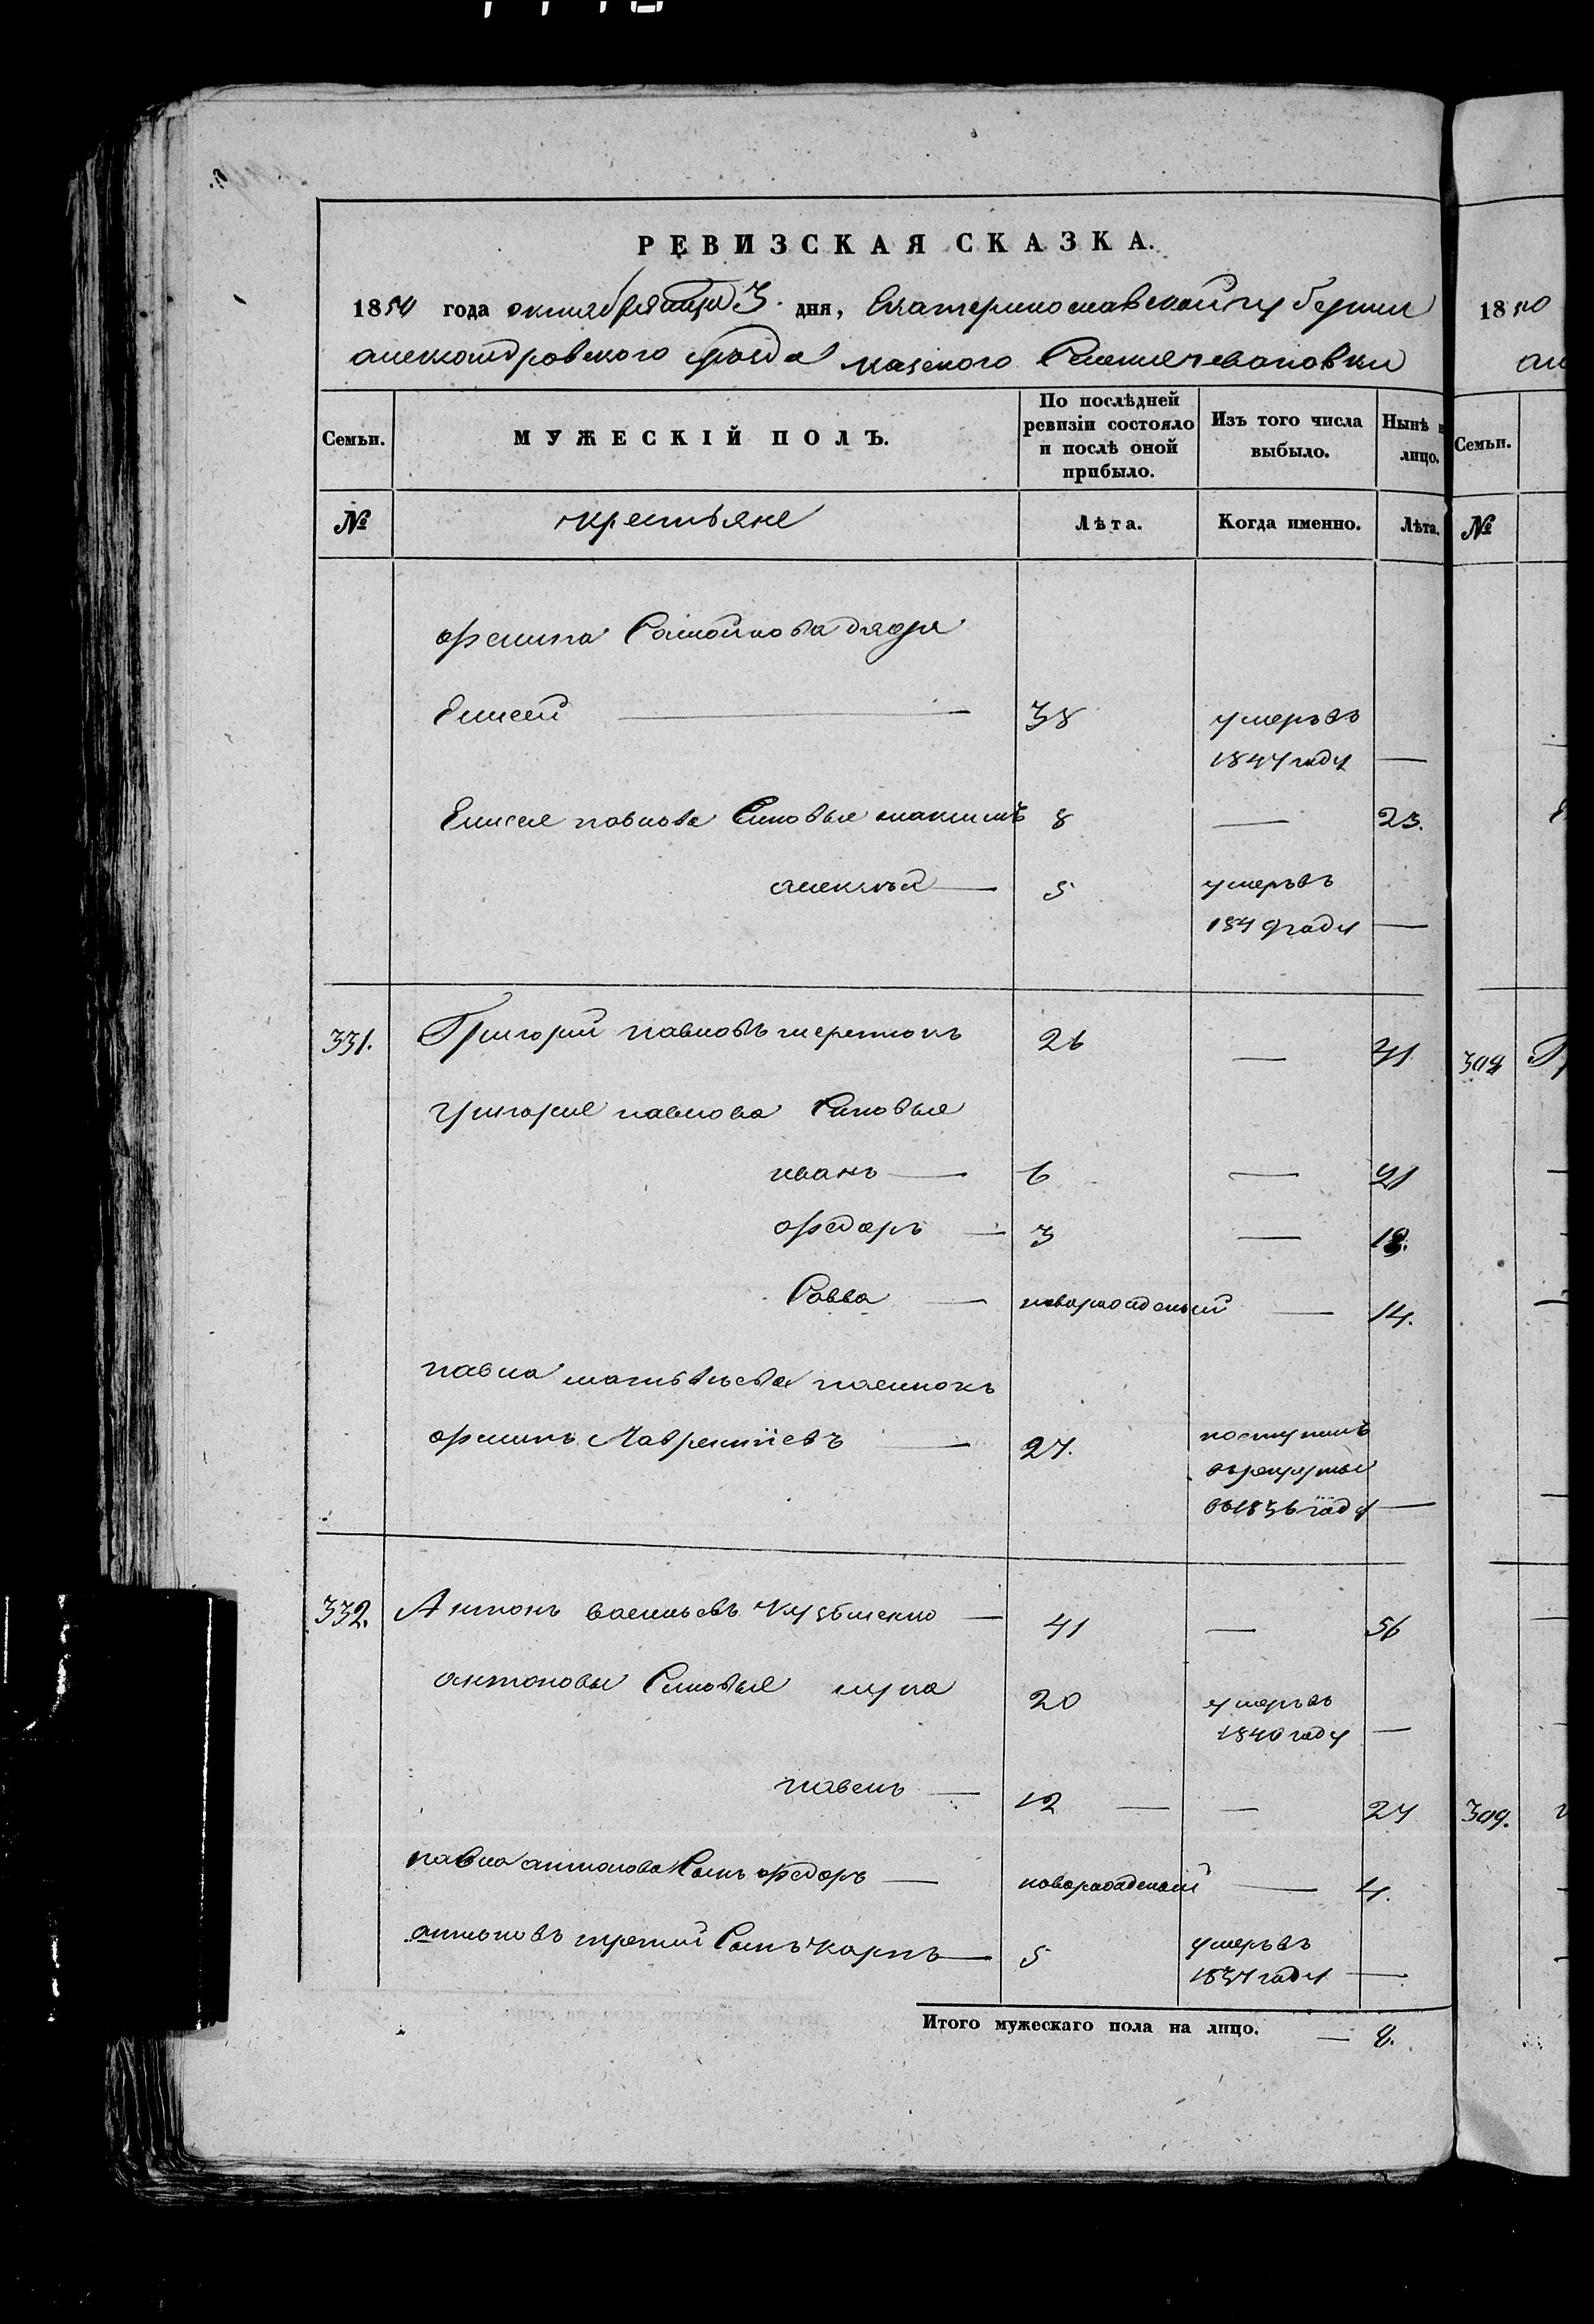 РЕВИЗСКАЯ СКАЗКА.
1850 года октября 3 дня, Екатеринославской губернии
александровского уезда казеного Селения
Семьи. МУЖЕСКІЙ ПОЛЪ. По послѣдней ревизіи состояло и послѣ оной прибыло. Изъ того числа выбыло. Нынѣ лицо.
№ крестьяне Лѣта. Когда именно. Лѣта.
Самойлова дядя
Елисей 38 умеръ въ
1847 году —
Елисея павлова Сыновья максимъ 8 — 23.
алексѣй — 5 умеръ въ
1849 году —
331. Григорий павловъ 26 — 41
григория павлова Сыновья
иванъ — 6 — 21
федоръ — 3 — 18.
Савва — новорожденый — 14.
павла матвѣева племянокъ
Лаврентіевъ — 27. поступилъ
въ рекруты
въ 1836 году —
332. Антонъ васильевъ Кузьменко — 41 — 56
антоновы Сыновья лука 20 умеръ въ
1840 году —
павелъ — 12 — — 27
павла антонова Сынъ федоръ — новорожденый — 4.
антоновъ третий Сынъ карпъ — 5 умеръ въ
1837 году —
Итого мужескаго пола на лицо. — 8.
1850
Семьи.
№
309.